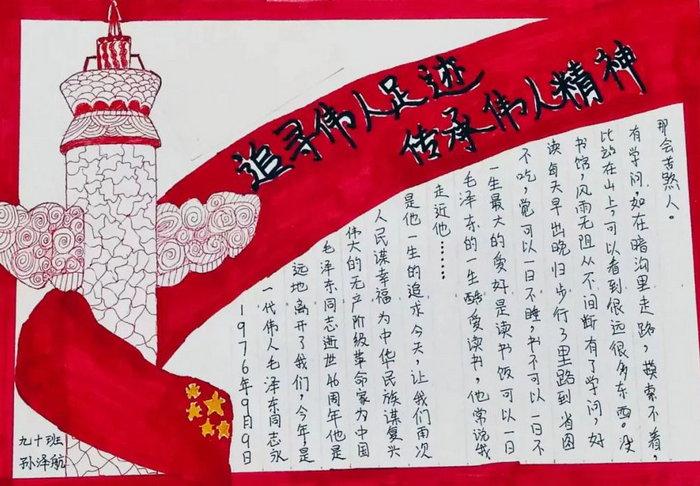 追寻伟人足迹
传承伟人精神
1976年9月9日
一代伟人毛泽东同志永
远地离开了我们,今年是
毛泽东同志逝世46周年他是
伟大的无产阶级革命家为中国
人民谋幸福为中华民族谋复兴
是他一生的追求今天,让我们再次
走近他……
毛泽东的一生酷爱读书,他常说我
一生最大的爱好是读书饭可以一日
不吃,觉可以一日不睡,书不可以一日不
读每天早出晚归步行3里路到省图
书馆,风雨无阻从不间断有了学问,好
比站在山上,可以看到很远很多东西。没
有学问,如在暗沟里走路,摸索不着,
那会苦煞人。
九十班
孙泽航